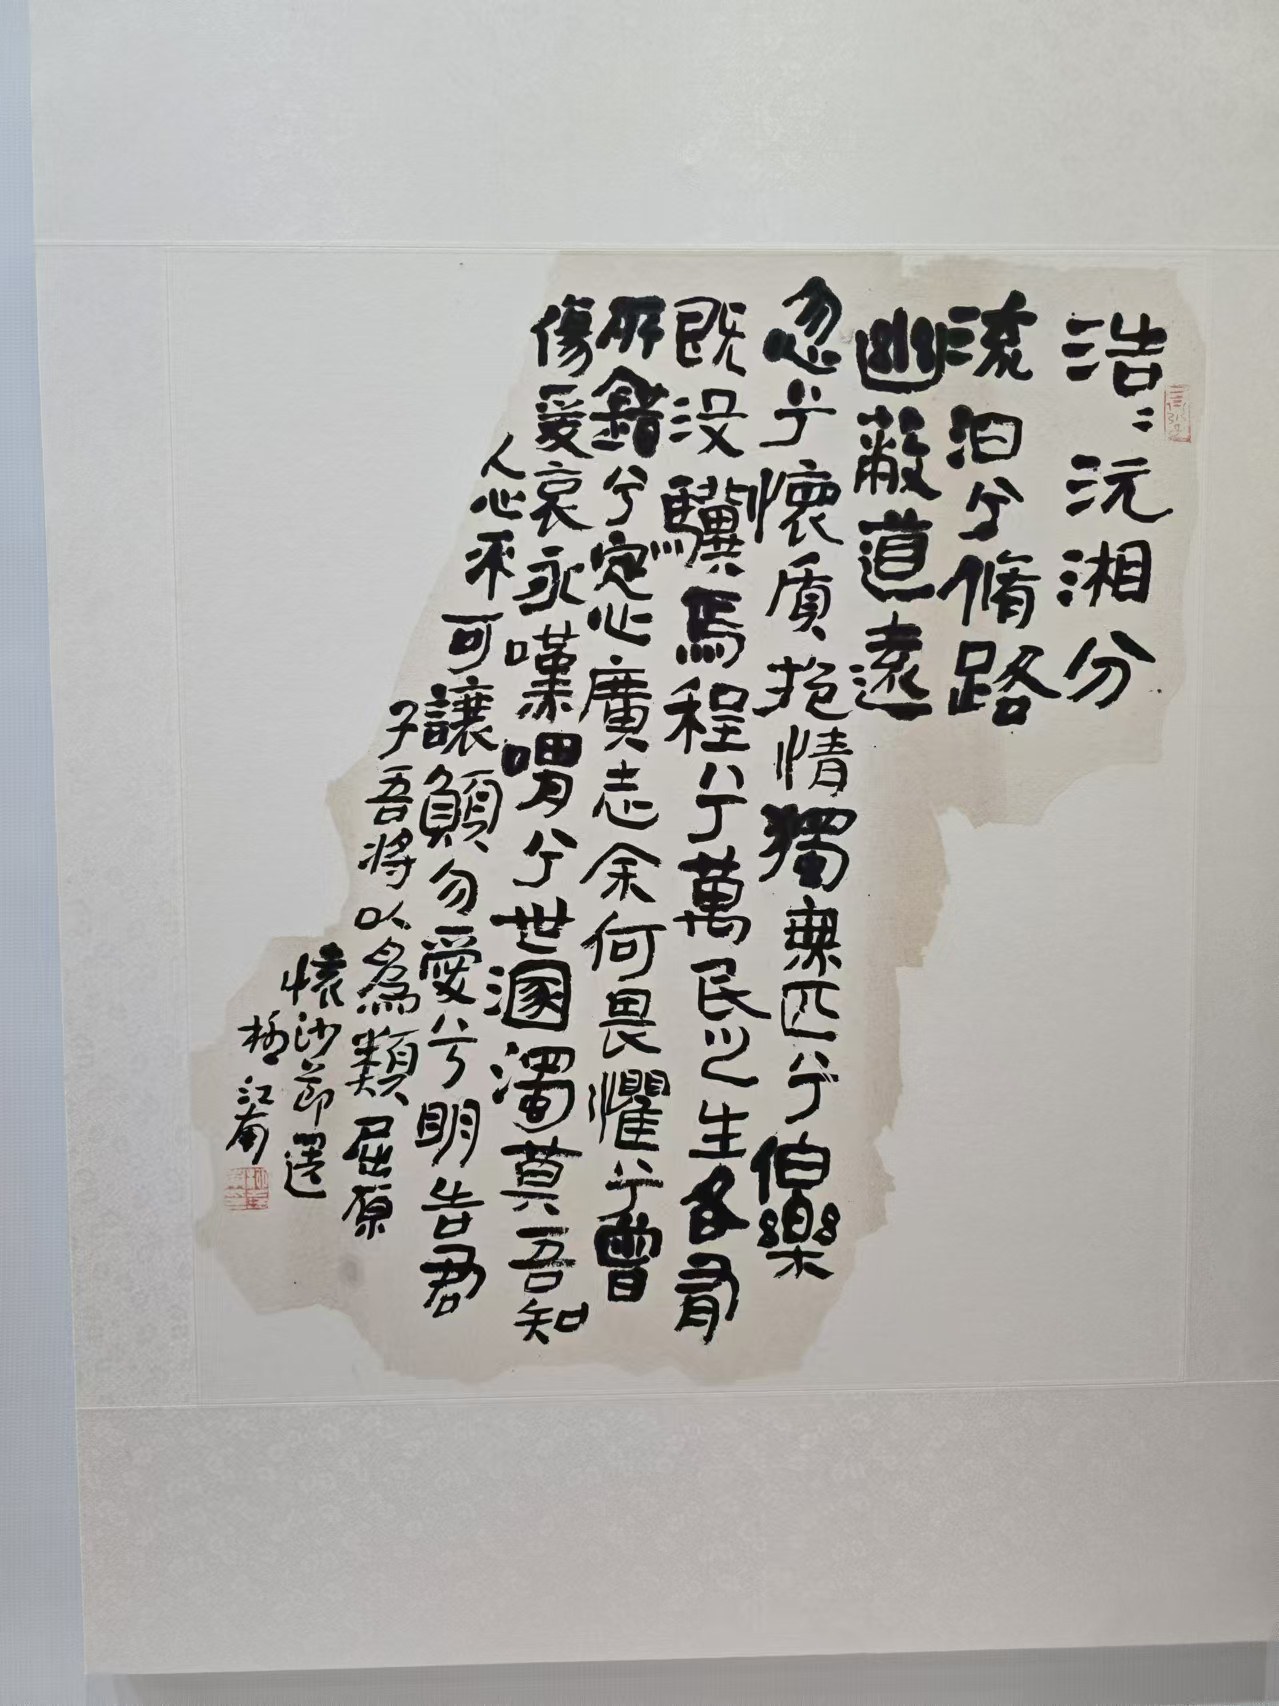 浩〻沅湘分
流汩兮脩路
幽蔽道遠
忽兮懷質抱情獨無匹兮伯樂
既沒驥焉程兮萬民之生各有
所錯兮定心廣志余何畏懼兮曾
傷爰哀永嘆喟兮世溷濁莫吾知
人心不可讓願勿愛兮明告君
子吾將以為類屈原
懷沙節選
江南